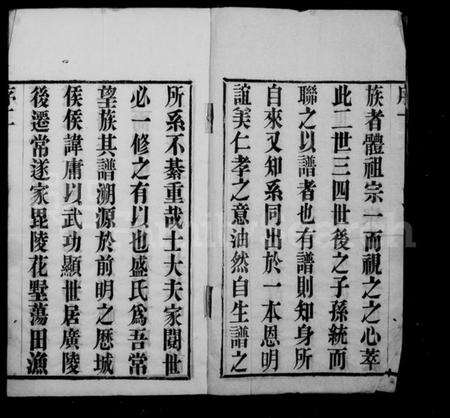 族者體祖宗一而視之之心萃
此二世三四世後之子孫統而
聯之以譜者也有譜則知身所
自來又知系同出於一本恩明
誼美仁孝之意油然自生譜之
所系不綦重哉士大夫家閱世
必一修之有以也盛氏為吾常
望族其譜溯源於前明之歷城
侯侯諱庸以武功顯世居廣陵
後遷常遂家毘陵花墅蕩田漁
序二